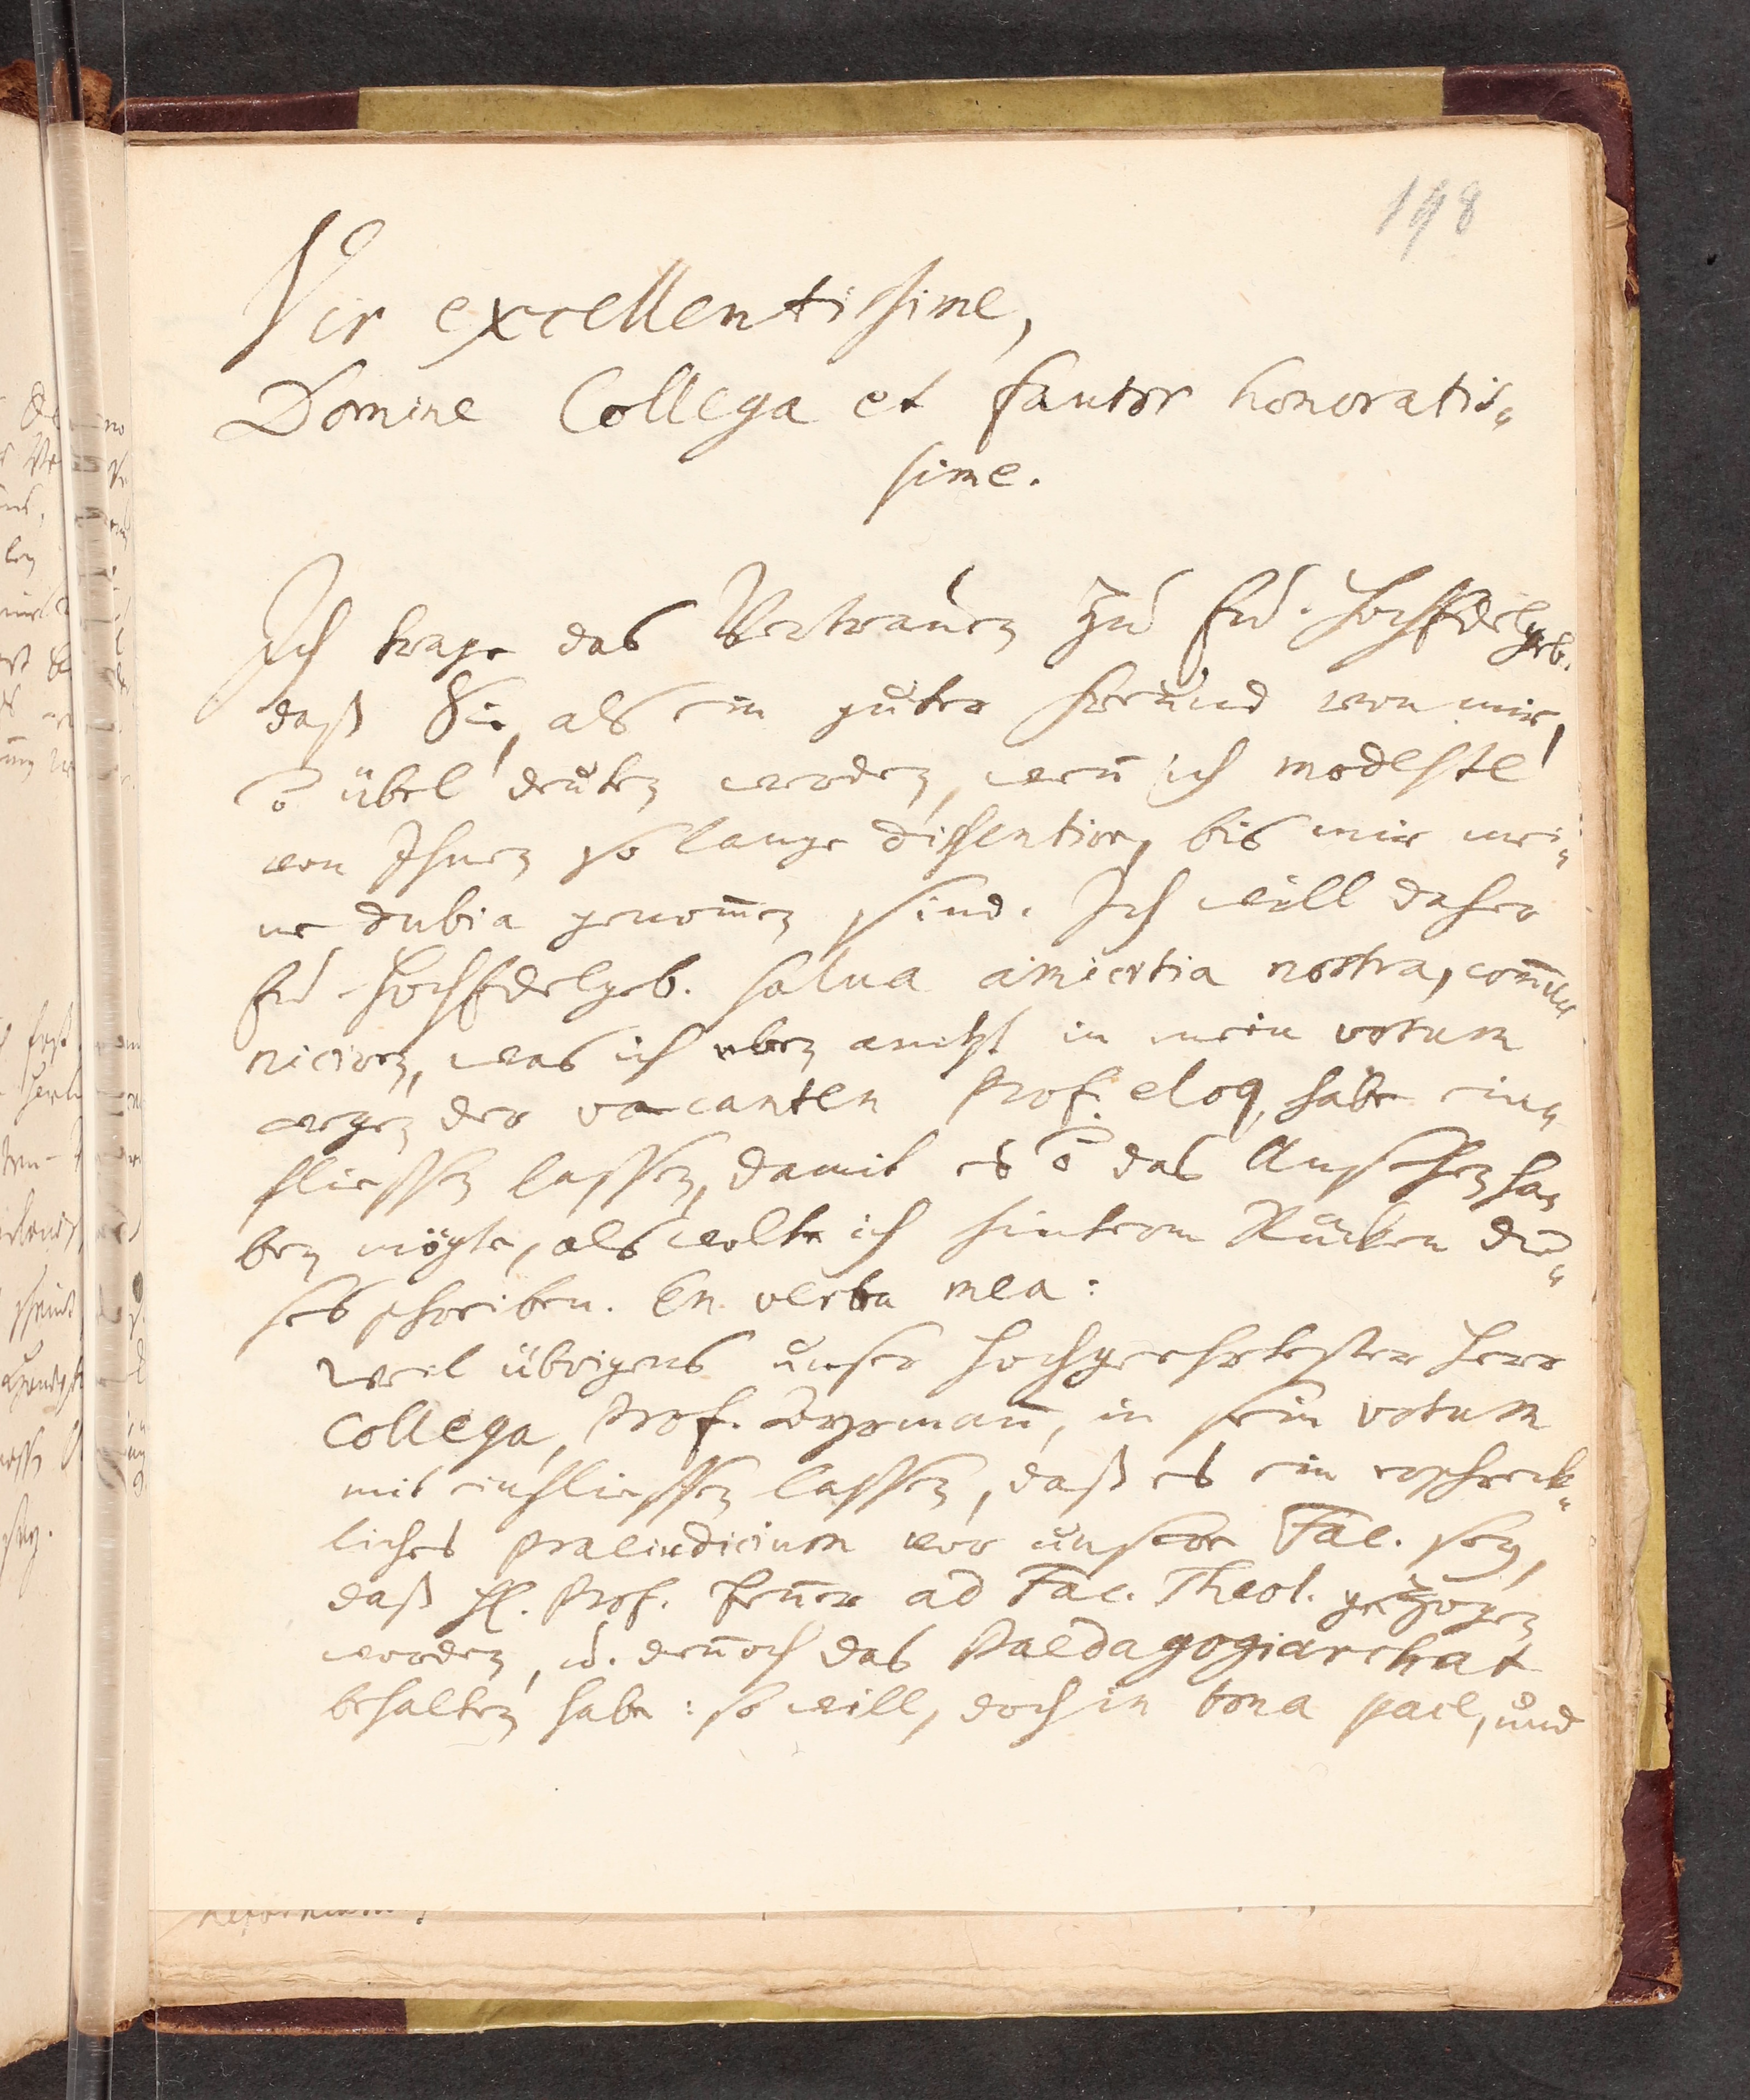 198
Vir excellentissime,
Domine Collega et fautor honoratis„
sime.
Ich trage das Vertrauen zu Ew. HochEdelgeb.
daß Sie, als ein guter Freund von mir,
õ übel deuten werden, wen̄ ich modeste
von Ihnen so lange dissentire, bis mir mei„
ne dubia genom̄en sind. Ich will daher
Ew. HochEdelgeb. salua amicitia nostra, com̄u
niciren, was ich eben anitzt in mein votum
wegen der vacanten Prof. eloq. habe ein„
fliessen lassen, damit es õ das Ansehen ha
ben mögte, als wolte ich hinterm Rücken die„
ses schreiben. En verba mea:
Weil übrigens unser Hochgeehrtester Herr
Collega, Prof. Weyrman̄, in sein votum
mit einfliessen lassen, daß es ein erschreck„
liches praeiudicium vor unsere Fac. sey,
daß H. Prof. Fen̄er ad Fac. Theol. gezogen
worden, u. den̄och das Paedagogiarchat
behalten habe: so will, doch in bona pace, und